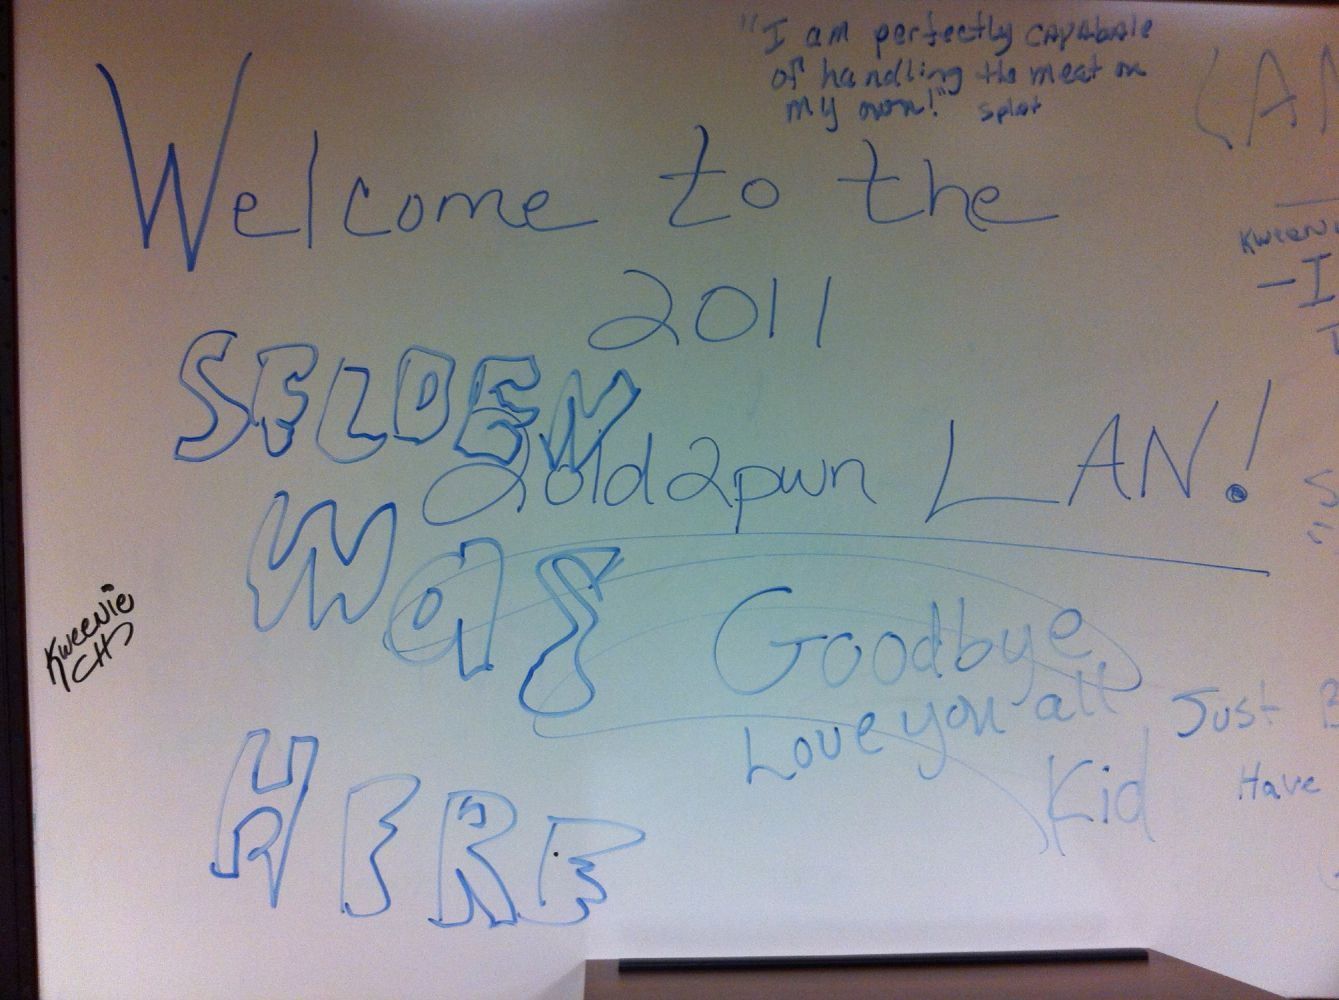 "I am perfectly capabale
of handling the meat on
my own!" splat
Welcome to the
2011
2old2pwn LAN!
SELDEN
WaS
HERE
Kweenie
Goodbye
Love you all
Kid
Just
Have
Kweeni
- I